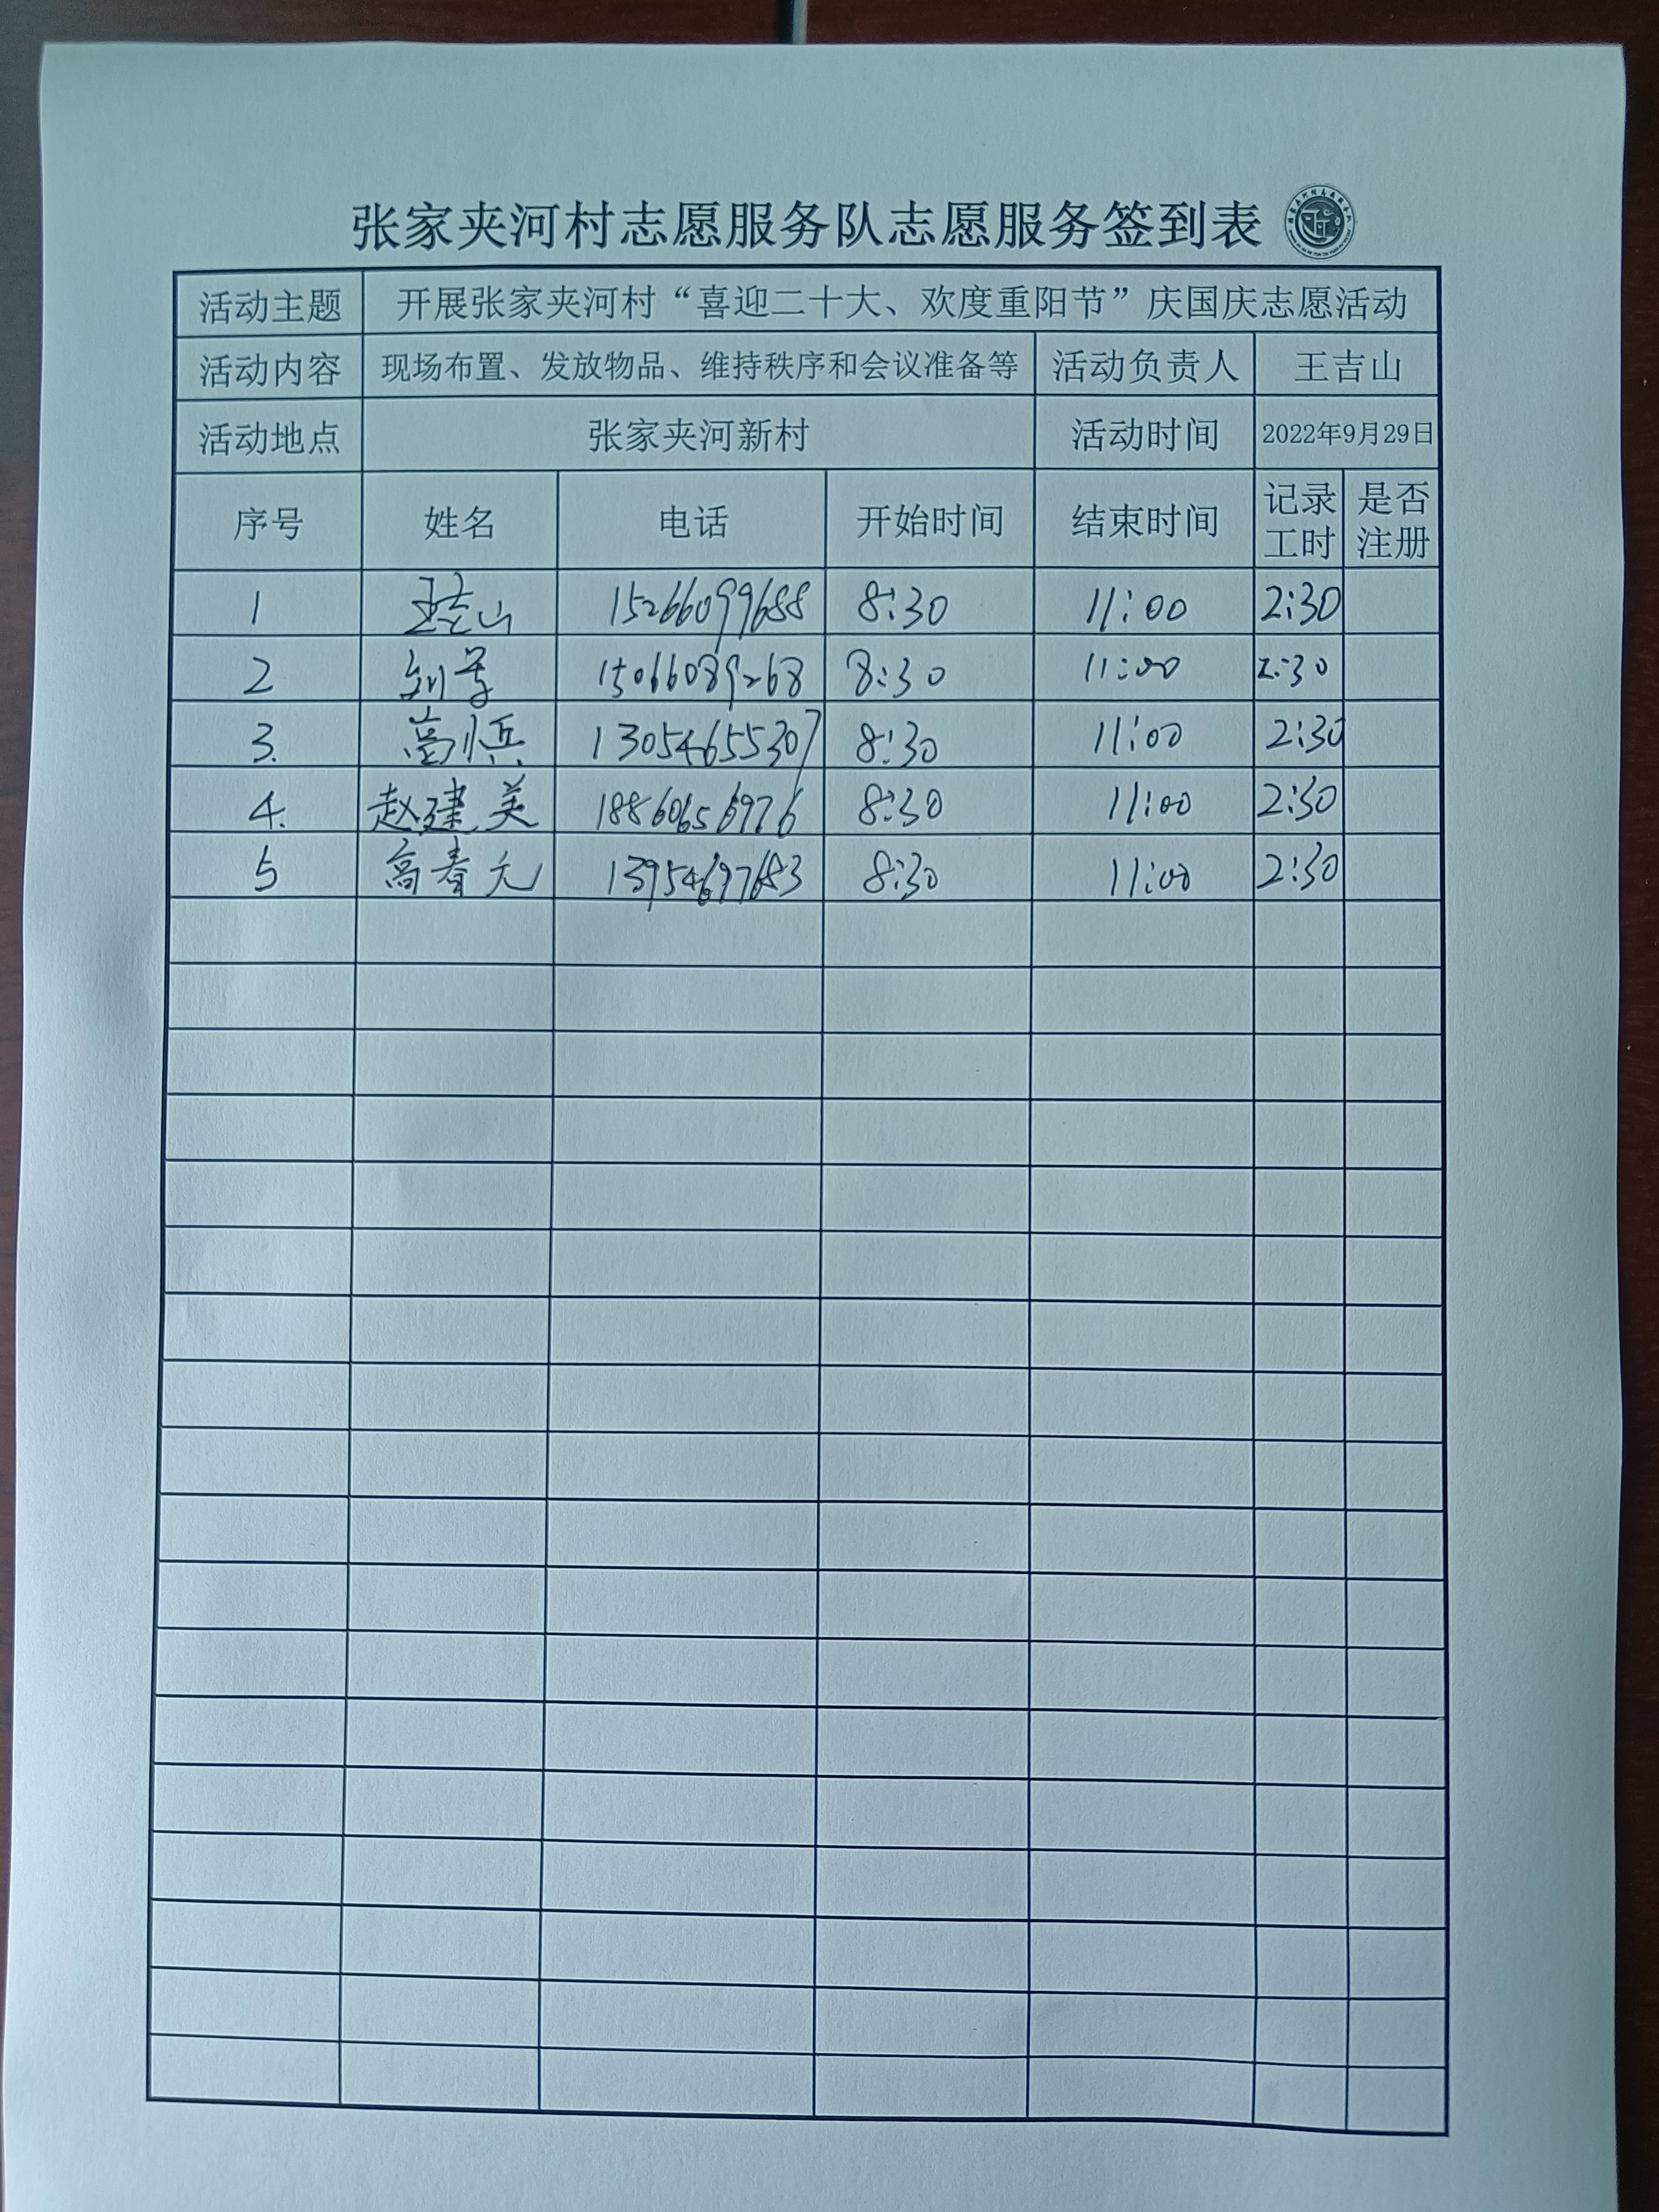 张家夹河村志愿服务队志愿服务签到表
活动主题 开展张家夹河村“喜迎二十大、欢度重阳节”庆国庆志愿活动
活动内容 现场布置、发放物品、维持秩序和会议准备等 活动负责人 王吉山
活动地点 张家夹河新村 活动时间 2022年9月29日
序号 姓名 电话 开始时间 结束时间 记录工时 是否注册
1 王吉山 15266099688 8:30 11:00 2:30
2 刘 15066089268 8:30 11:00 2:30
3. 高 13054655307 8:30 11:00 2:30
4. 赵建美 18860656976 8:30 11:00 2:30
5 高春元 13954697683 8:30 11:00 2:30